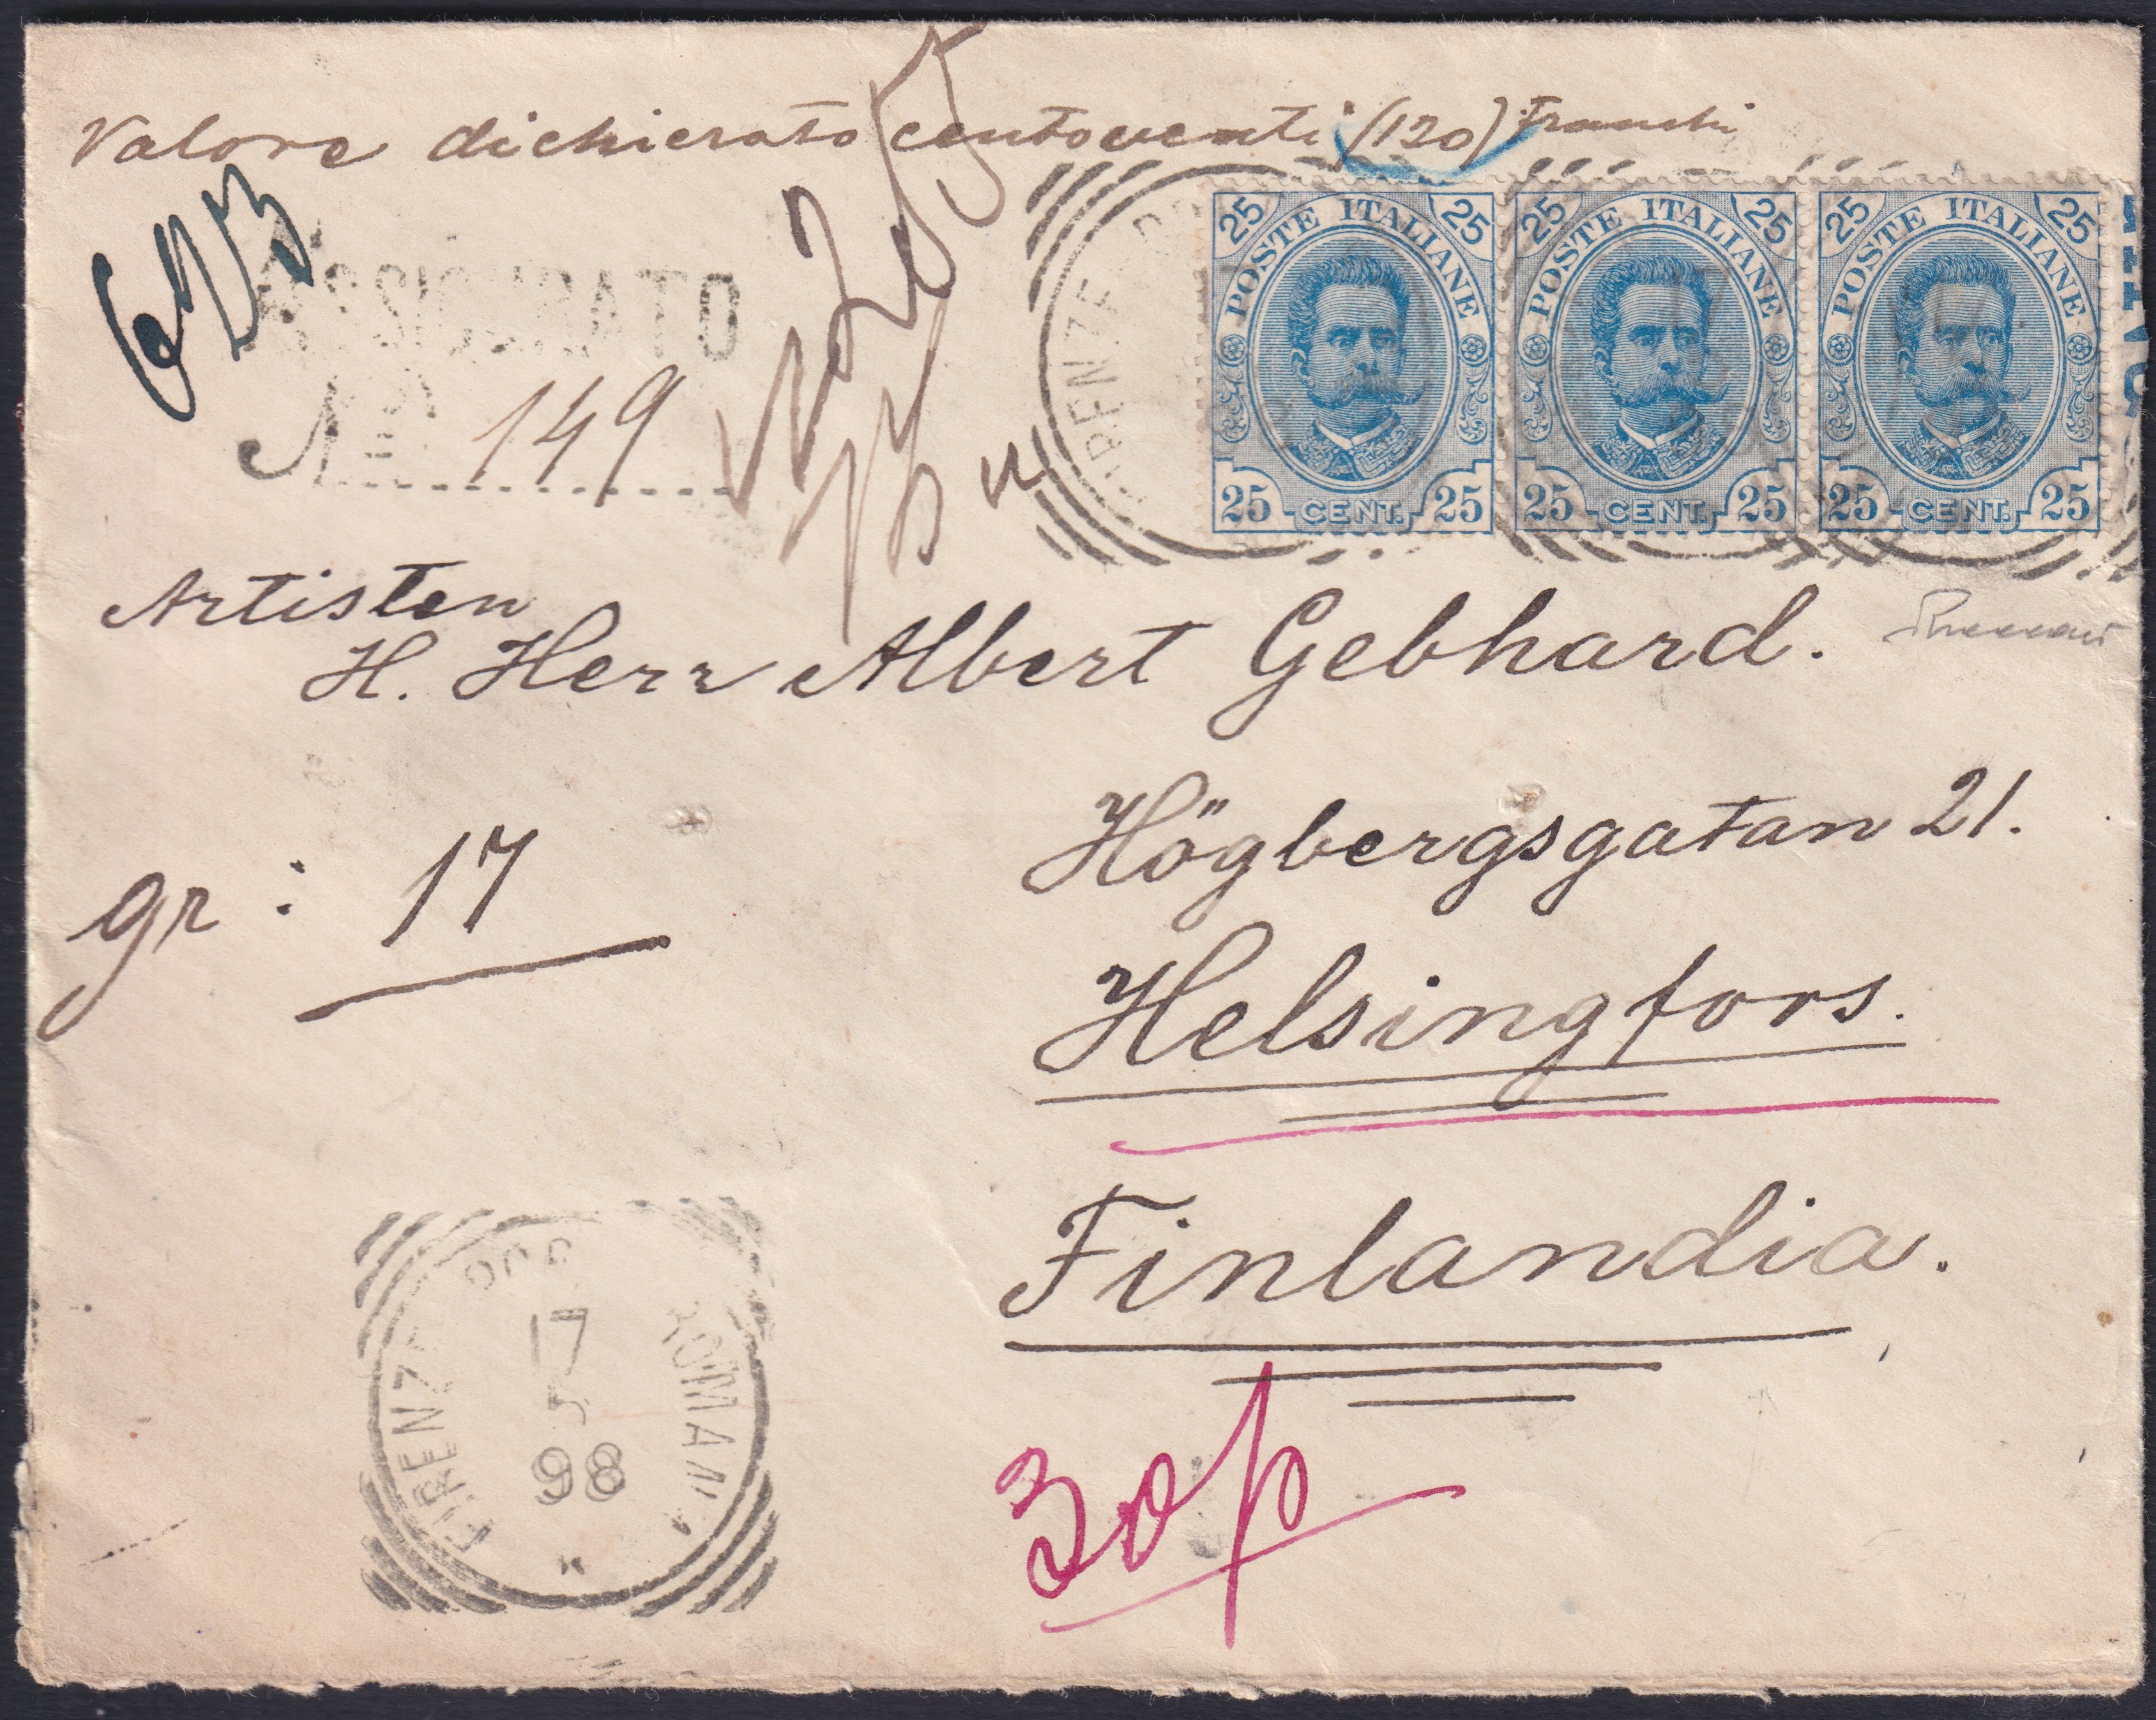 Valore dichierato centoventi (120) Franchi
ASSICURATO
No 149
25 POSTE ITALIANE 25
25 CENT. 25
25 POSTE ITALIANE 25
25 CENT. 25
25 POSTE ITALIANE 25
25 CENT. 25
FIRENZE
Artisten
H. Herr Albert Gebhard.
gr: 17
Högbergsgatan 21.
Helsingfors.
Finlandia.
FIRENZE ROMANA
17
5
98
30 p